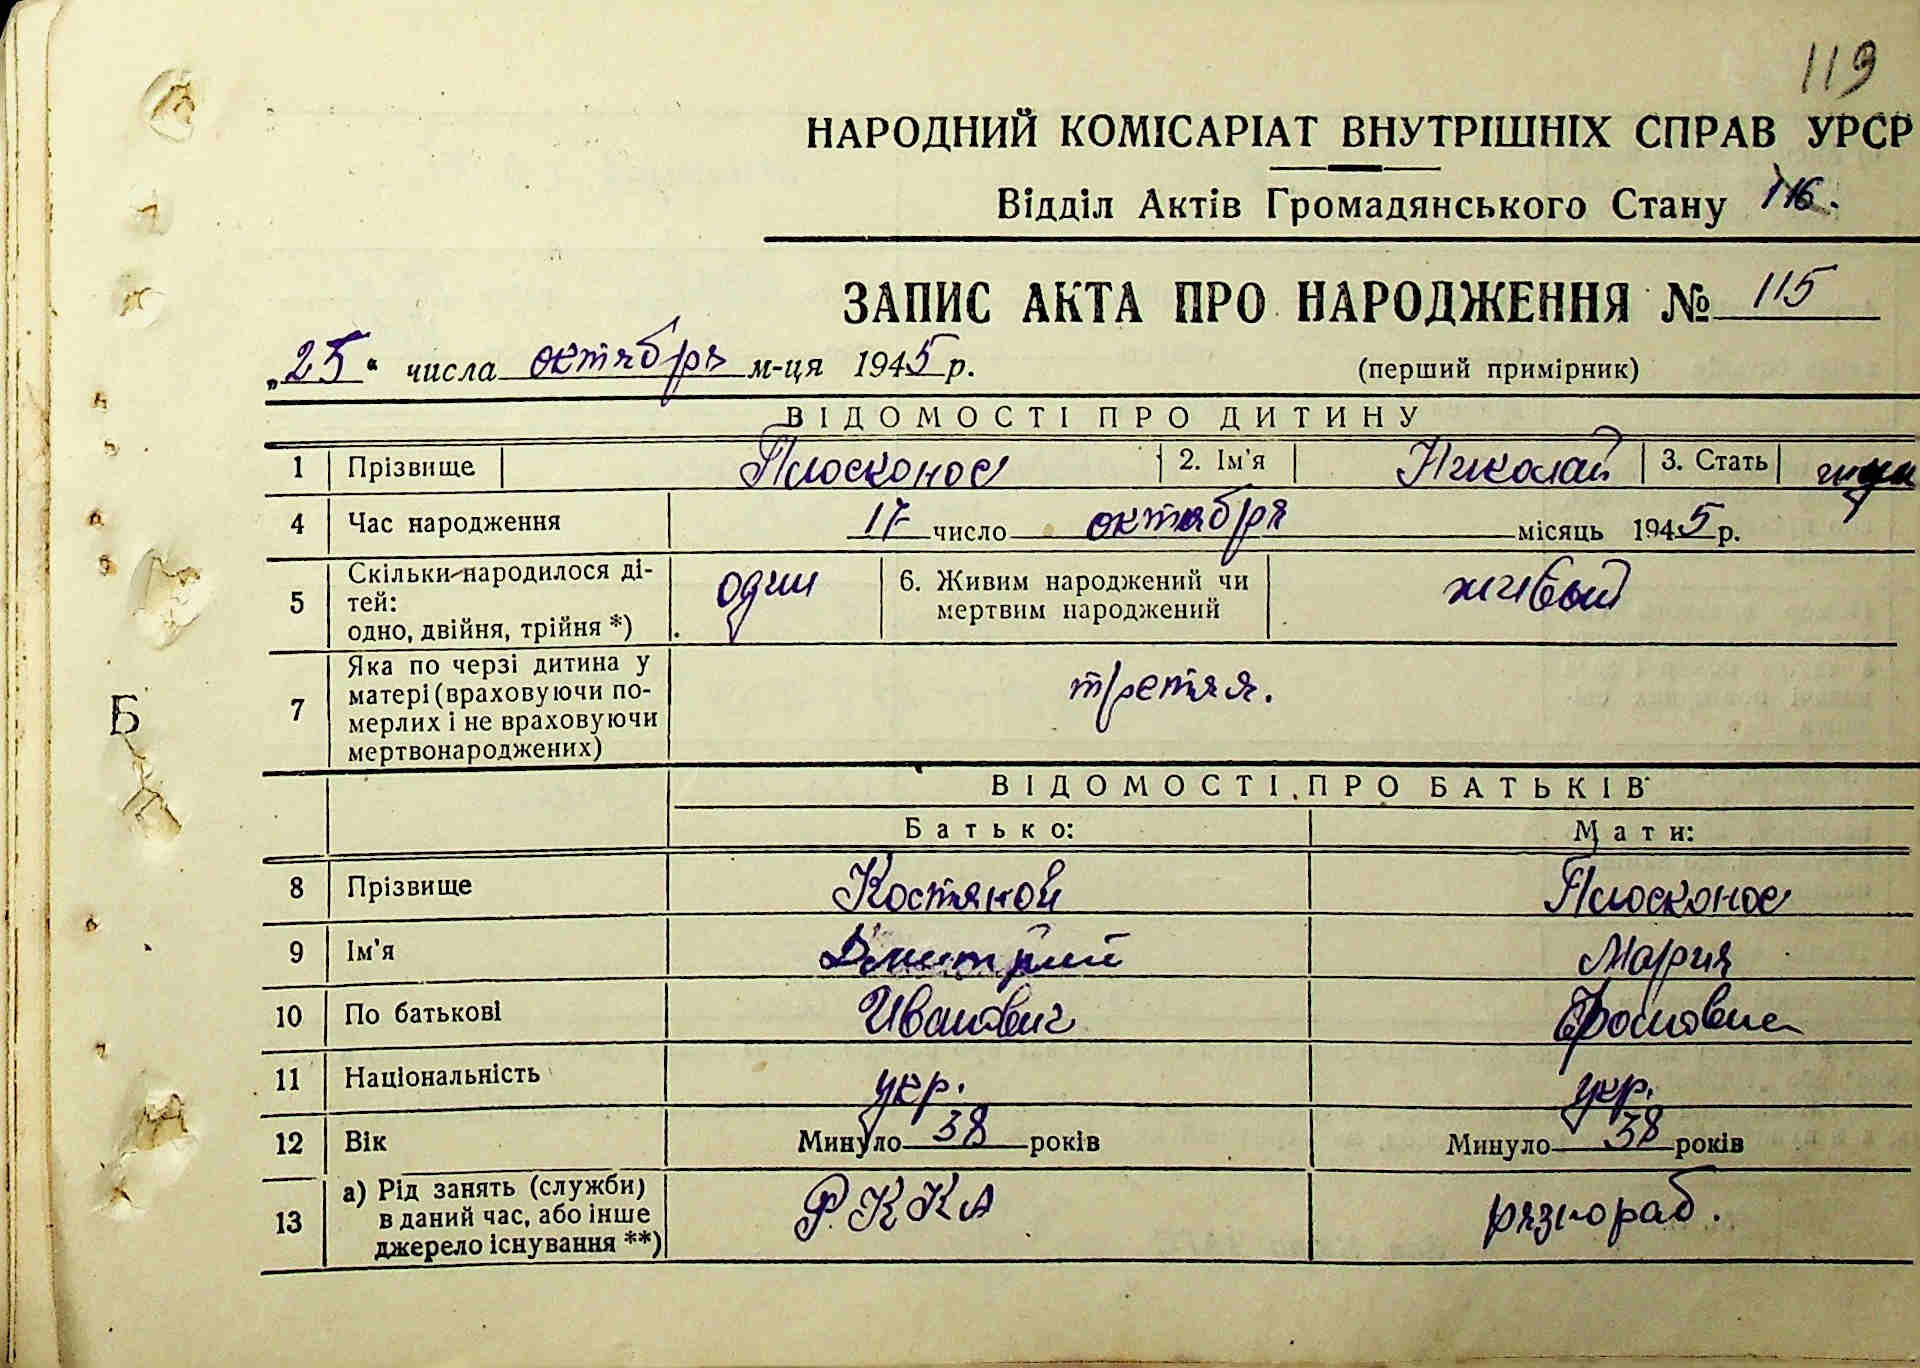 119
НАРОДНИЙ КОМІСАРІАТ ВНУТРІШНІХ СПРАВ УРСР
Відділ Актів Громадянського Стану 116.
ЗАПИС АКТА ПРО НАРОДЖЕННЯ № 115
„25“ числа октября м-ця 1945 р. (перший примірник)
ВІДОМОСТІ ПРО ДИТИНУ
1 Прізвище Плосконос 2. Ім'я Николай 3. Стать
4 Час народження 17 число октября місяць 1945 р.
5 Скільки народилося ді-
тей:
одно, двійня, трійня *) один 6. Живим народжений чи
мертвим народжений живой
7 Яка по черзі дитина у
матері (враховуючи по-
мерлих і не враховуючи
мертвонароджених) третяя.
ВІДОМОСТІ ПРО БАТЬКІВ
Батько: Мати:
8 Прізвище Костяной Плосконос
9 Ім'я Дмитрий Мария
10 По батькові Иванович
11 Національність укр. укр.
12 Вік Минуло 38 років Минуло 38 років
13 а) Рід занять (служби)
в даний час, або інше
джерело існування **) Р.ККА разнораб.
Б